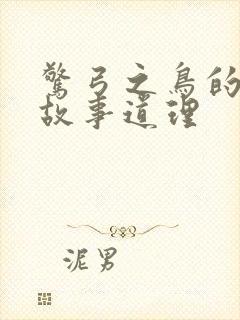 驚弓之鳥的
故事道理
泥男